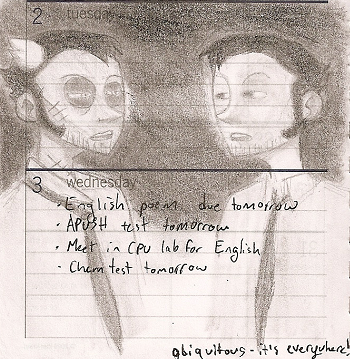 2 tuesday
3 wednesday
· English poem due tomorrow
· APUSH test tomorrow
· Meet in CPU lab for English
· Chem test tomorrow
qbiquitous - it's everywhere!